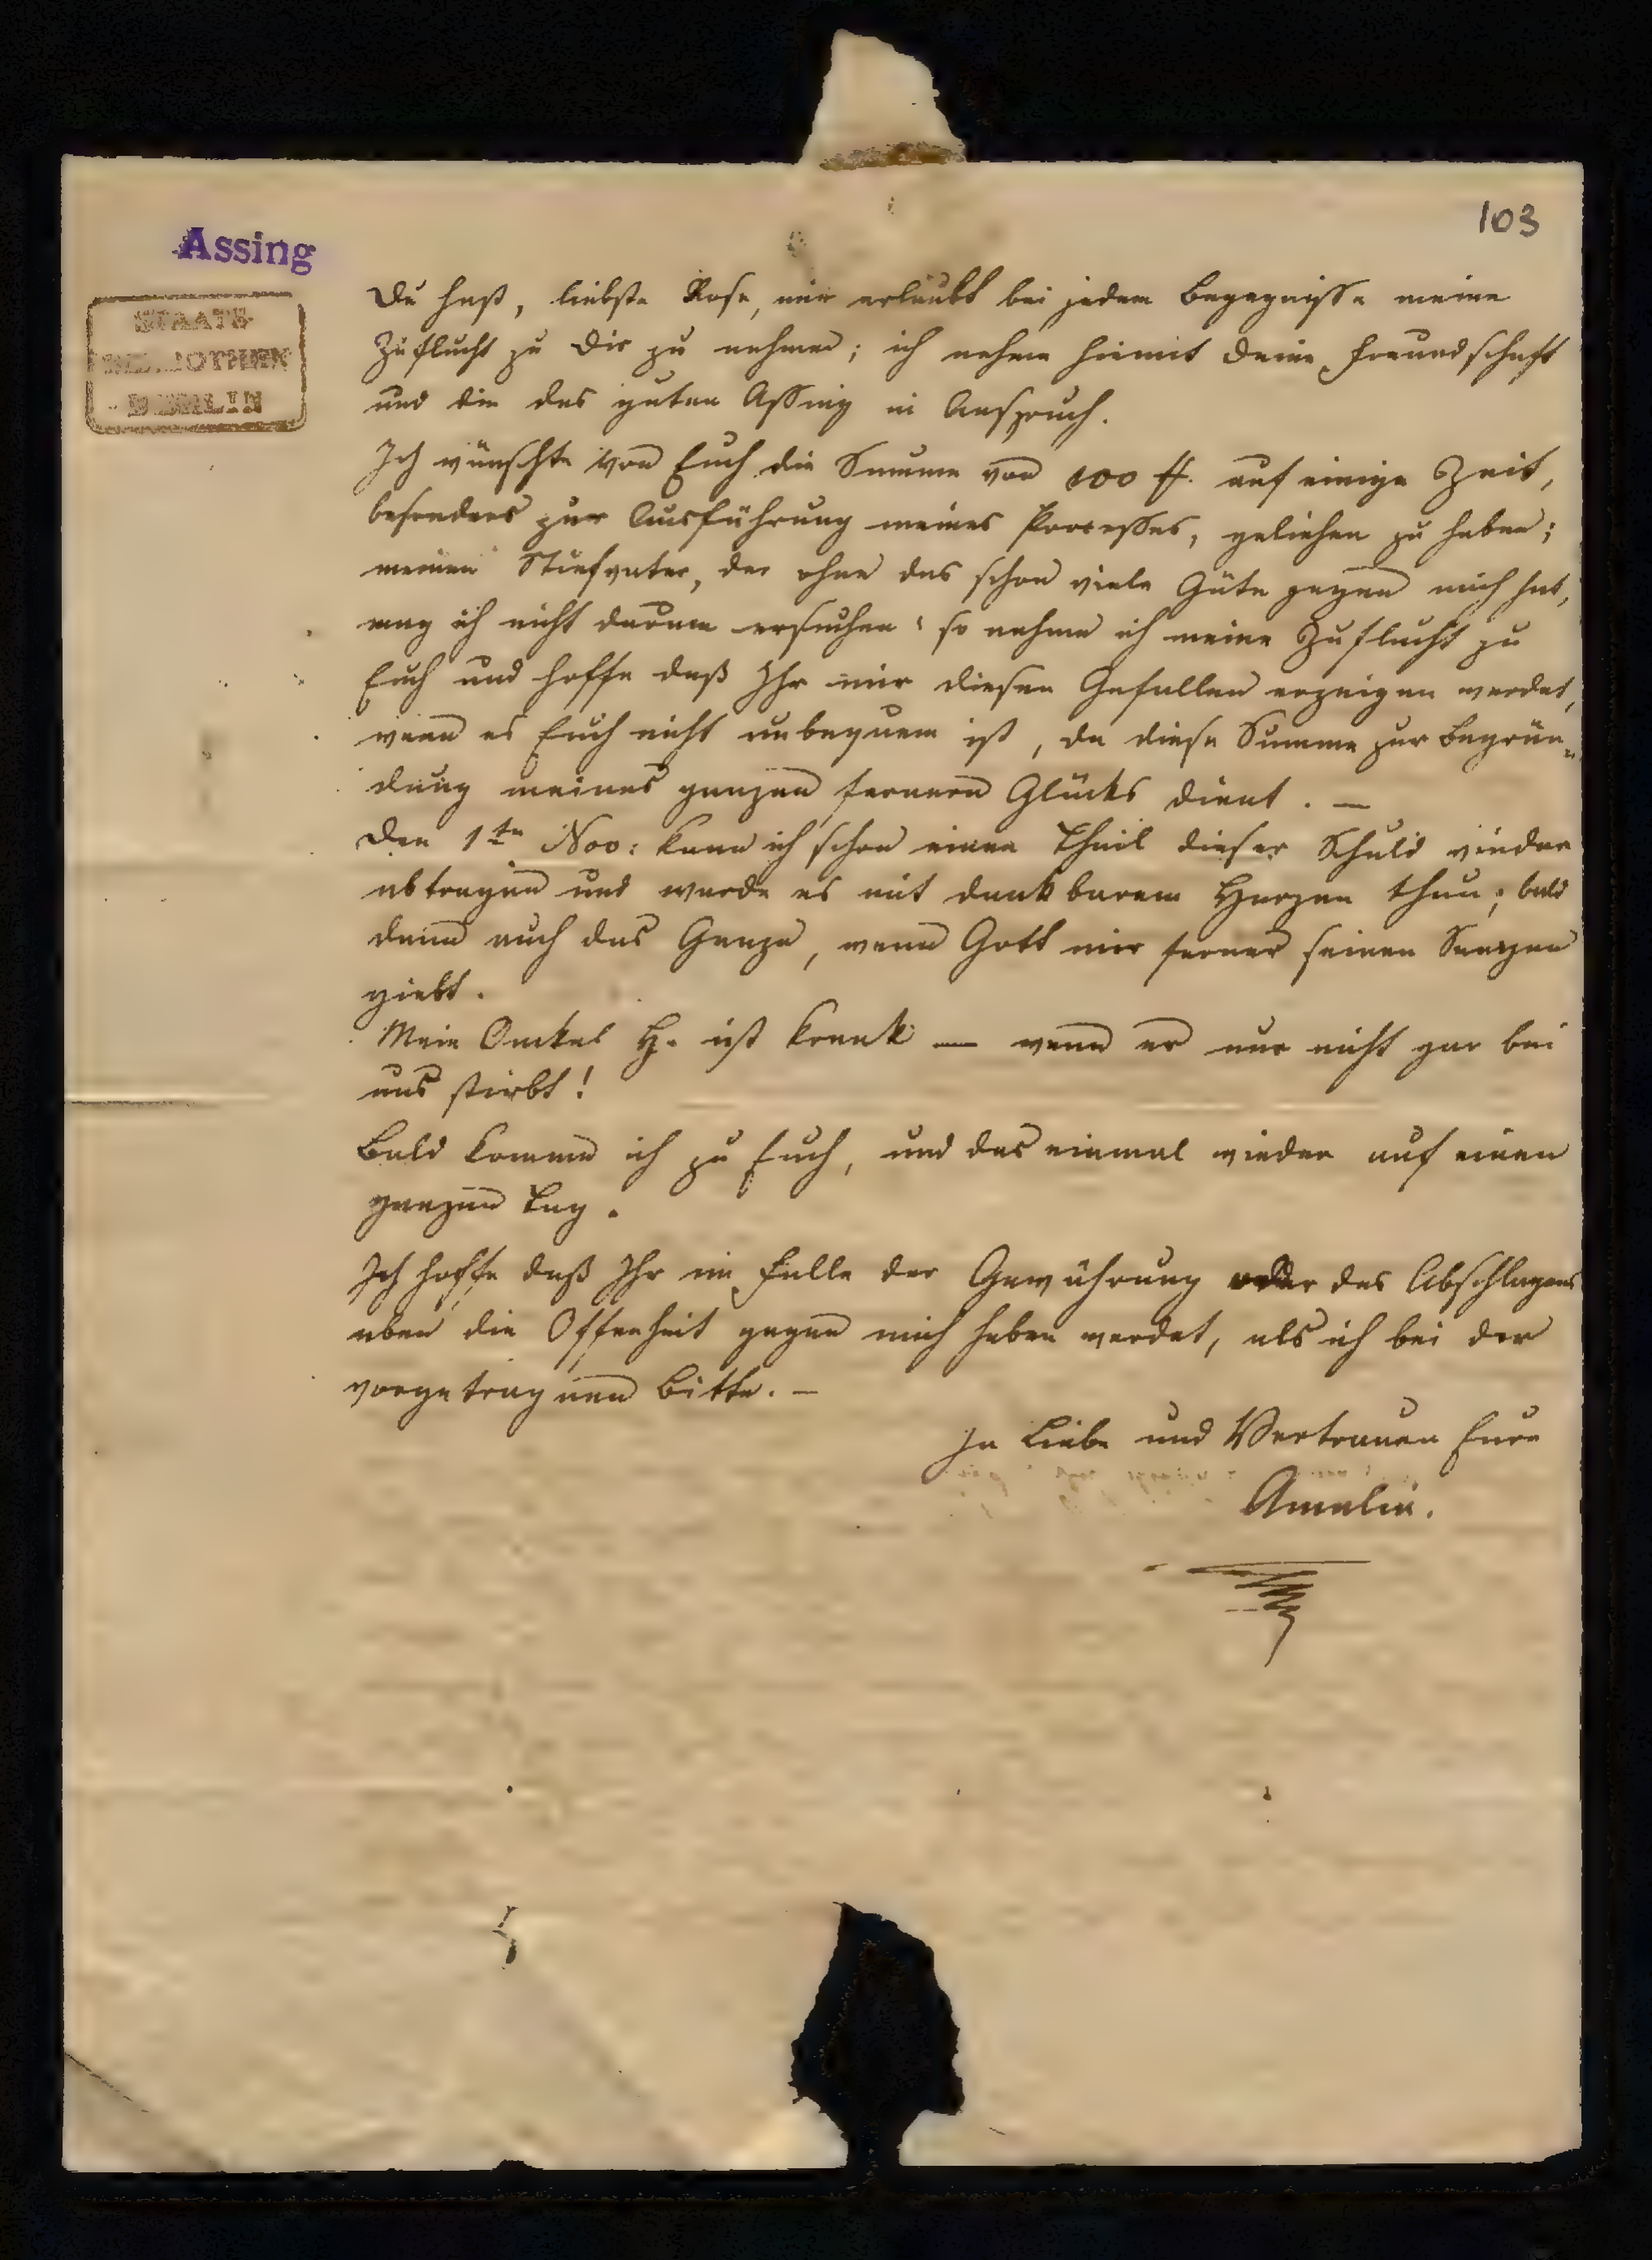 103
Assing
STAATS-
BIBLIOTHEK
BERLIN
Du hast, liebste Rose, mir erlaubt bei jedem Begegnisse meine
Zuflucht zu Dir zu nehmen; ich nehme hiemit Deine Freundschaft
und die des guten Assing in Anspruch.
Ich wünschte von Euch die Summe von 100 auf einige Zeit,
besonders zur Ausführung meines Processes, geliehen zu haben;
meinen Stiefvater, der ohne das schon viele Güte gegen mich hat,
mag ich nicht darum ersuchen; so nehme ich meine Zuflucht zu
Euch und hoffe daß Ihr mir diesen Gefallen erzeigen werdet,
wenn es Euch nicht unbequem ist, da diese Summe zur Begrün-
dung meines ganzen fernern Glücks dient. —
Den 1ten Nov: kann ich schon einen Theil dieser Schuld wieder
abtragen und werde es mit dankbarem Herzen thun; bald
dann auch das Ganze, wenn Gott mir ferner seinen Seegen
giebt.
Mein Onkel H. ist krank — wenn er nur nicht gar bei
uns stirbt!
Bald komme ich zu Euch, und das einmal wieder auf einen
ganzen Tag.
Ich hoffe daß Ihr im Falle der Gewährung oder des Abschlagens
eben die Offenheit gegen mich haben werdet, als ich bei der
vorgetragnen Bitte. —
In Liebe und Vertrauen Eure
Amalie.